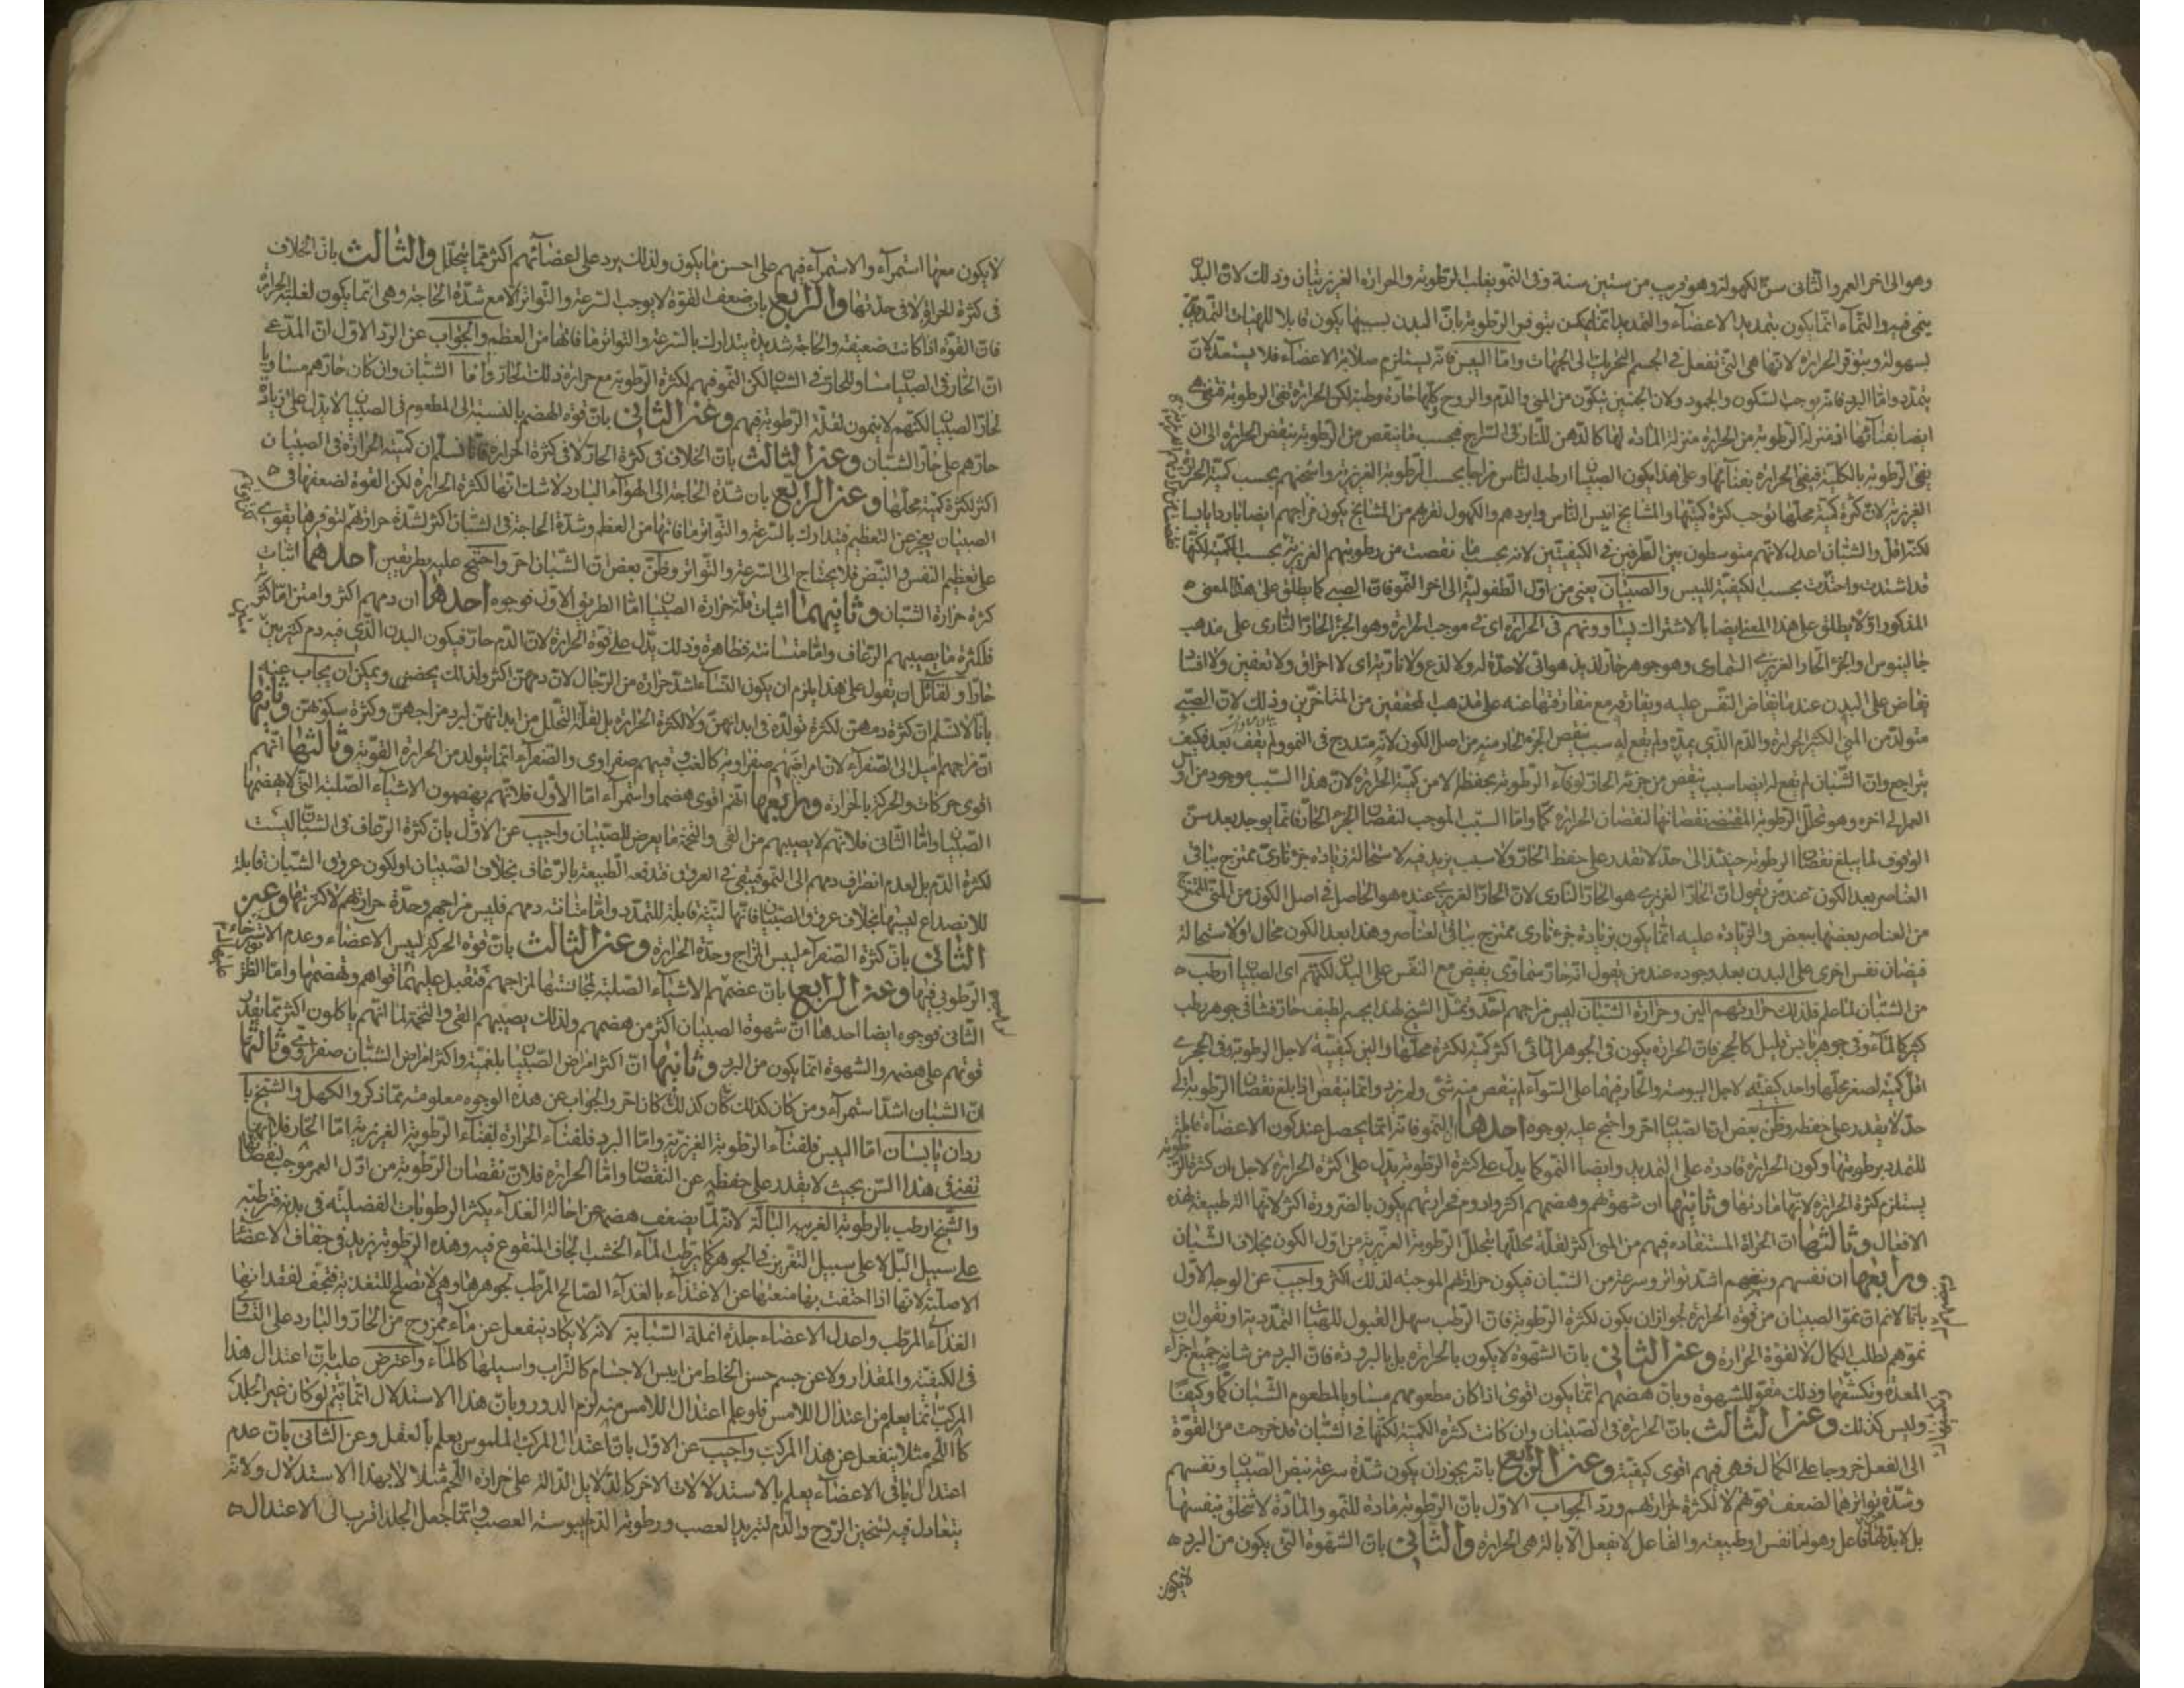 وهو الى اخر العمر والثانى سن الكهولة وهو قريب من ستين سنة وفى النمو يغلب الرطوبة والحرارة الغريزيتان وذلك لان البدن
ينمى فيه والنماء انما يكون بتمديد الاعضاء والتمديد انما يمكن بتوفر الرطوبة بان البدن بسببها يكون قابلا للهيئات التمديدية
بسهولة وبتوفر الحرارة لانها هى التى تفعل فى الجسم التحريك الى الجهات واما اليبس فانه يستلزم صلابة الاعضاء فلا يستعد لان
يتمدد واما البرد فانه يوجب السكون والجمود ولان الجنين يتكون من المنى والدم والروح وكلها حارة رطبة لكن الحرارة تفنى الرطوبة فتفنى هى
ايضا بفنائها اذ منزلة الرطوبة من الحرارة منزلة المادة لها كالدهن للنار فى السراج فبحسب ما ينقص من الرطوبة ينقص الحرارة الى ان
يفنى الرطوبة بالكلية فيفنى الحرارة بفنائها وعلى هذا يكون الصبيان ارطب الناس مزاجا بحسب الرطوبة الغريزية واسخنهم بحسب كمية الحرارة
الغريزية لان كثرة كمية محلها توجب كثرة كميتها والمشايخ ايبس الناس وابردهم والكهول لقربهم من المشايخ يكون مزاجهم ايضا باردا يابسا
لكنه اقل والشبان اعدل لانهم متوسطون بين الطرفين فى الكيفيتين لانه بحسب ما نقصت من رطوبتهم الغريزية بحسب الكمية لكنها
قد اشتدت واحتدت بحسب الكيفية لليبس والصبيان يعنى من اول الطفولية الى اخر النمو فان الصبى كما يطلق على هذا المعنى
المذكور اولا يطلق على هذا المعنى ايضا بالاشتراك يساوونهم فى الحرارة اى فى موجب الحرارة وهو الجزء الحار النارى على مذهب
جالينوس والجزء الحار الغريزى السماوى وهو جوهر حار لذيذ هوائى لا حدة له ولا لذع ولا نارية اى لا احراق ولا تعفين ولا افساد
يفاض على البدن عند ما يفاض النفس عليه ويفارقه مع مفارقتها عنه على مذهب المحققين من المتاخرين وذلك لان الصبى
متولد من المنى الكثير الحرارة والدم الذى يمده ولم يقع له سبب ينقص الجزء الحار منه من اصل الكون لانه متدرج فى النمو ولم يقف بعد فكيف
يتراجع وان الشبان لم يقع له ايضا سبب ينقص من جزئه الحار لوفاء الرطوبة بحفظها لا من كمية الحرارة لان هذا السبب موجود من اول
العمر الى اخره وهو تحلل الرطوبة المقتضى نقصانها لنقصان الحرارة كما واما السبب الموجب لنقصان الجزء الحار فانما يوجد بعد سن
الوقوف لما يبلغ نقصان الرطوبة حينئذ الى حد لا تقدر على حفظ الحار ولا سبب يزيد فيه لاستحالة زيادة جزء نارى ممتزج بباقى
العناصر بعد الكون عند من يقول ان الحار الغريزى هو الحار النارى لان الحار الغريزى عنده هو الحاصل فى اصل الكون من المنى الممتزج
من العناصر بعضها ببعض والزيادة عليه انما يكون بزيادة جزء نارى ممتزج بباقى العناصر وهذا بعد الكون محال او لاستحالة
فيضان نفس اخرى على البدن بعد وجوده عند من يقول انه حار سماوى يفيض مع النفس على البدن لكنهم اى الصبيان ارطب
من الشبان لما علم فلذلك حرارتهم الين وحرارة الشبان ليبس مزاجهم احد ومثل الشيخ لهذا بجسم لطيف حار فشا فى جوهر رطب
كثير كالماء وفى جوهر يابس قليل كالحجر فان الحرارة يكون فى الجوهر المائى اكثر كمية لكثرة محلها والين كيفية لاجل الرطوبة وفى الحجرى
اقل كمية لصغر محلها واحد كيفية لاجل اليبوسة والحار فيهما على السواء لم ينقص منه شئ ولم يزد وانما ينقص اذا بلغ نقصان الرطوبة الى
حد لا يقدر على حفظه وظن بعض ان الصبيان احر واحتج عليه بوجوه احدها النمو فانه انما يحصل عند كون الاعضاء قابلة
للتمدد برطوبتها وكون الحرارة قادرة على التمديد وايضا النمو كما يدل على كثرة الرطوبة يدل على كثرة الحرارة لاجل ان كثرة الرطوبة
يستلزم كثرة الحرارة لانها مادتها وثانيها ان شهوتهم وهضمهم اكثر وادوم فحرارتهم يكون بالضرورة اكثر لانها الة طبيعة لهذه
الافعال وثالثها ان الحرارة المستفادة فيهم من المنى اكثر لقلة تحللها بتحلل الرطوبة الغريزية من اول الكون بخلاف الشبان
ورابعها ان نفسهم ونبضهم اشد تواترا وسرعة من الشبان فيكون حرارتهم الموجبة لذلك اكثر واجيب عن الوجه الاول
بانا لانم ان نمو الصبيان من قوة الحرارة لجواز ان يكون لكثرة الرطوبة فان الرطب سهل القبول للهيئات التمديدية او نقول ان
نموهم لطلب الكمال لا لقوة الحرارة وعن الثانى بان الشهوة لا يكون بالحرارة بل بالبرودة فان البرد من شانه جميع اجزاء
المعدة وتكثيفها وذلك مقو للشهوة وبان هضمهم انما يكون اقوى اذا كان مطعومهم مساويا لمطعوم الشبان كما وكيفا
وليس كذلك وعن الثالث بان الحرارة فى الصبيان وان كانت كثيرة الكمية لكنها فى الشبان قد خرجت من القوة
الى الفعل خروجا على الكمال فهى فيهم اقوى كيفية وعن الرابع بانه يجوز ان يكون شدة سرعة نبض الصبيان ونفسهم
وشدة تواترهما لضعف قوتهم لا لكثرة حرارتهم ورد الجواب الاول بان الرطوبة مادة للنمو والمادة لا تتخلق بنفسها
بل لا بد لها من فاعل وهو اما نفس او طبيعة والفاعل لا يفعل الا بالة هى الحرارة والثانى بان الشهوة التى يكون من البرد
لا يكون
لا يكون معها استمراء والاستمراء فيهم على احسن ما يكون ولذلك يرد على اعضائهم اكثر مما يتحلل والثالث بان الخلاف
فى كثرة الحرارة لا فى حدتها والرابع بان ضعف القوة لا يوجب السرعة والتواتر الا مع شدة الحاجة وهى انما يكون لغلبة الحرارة
فان القوة اذا كانت ضعيفة والحاجة شديدة يتدارك بالسرعة والتواتر ما فاتها من العظم والجواب عن الرد الاول ان المدعى
ان الحار فى الصبيان مساو للحار فى الشبان لكن النمو فيهم لكثرة الرطوبة مع حرارة ذلك الحار واما الشبان وان كان حارهم مساويا
لحار الصبيان لكنهم لا ينمون لقلة الرطوبة فيهم وعن الثانى بان قوة الهضم بالنسبة الى المطعوم فى الصبيان لا يدل على زيادة
حارهم على حار الشبان وعن الثالث بان الخلاف فى كثرة الحار لا فى كثرة الحرارة فانا نسلم ان كمية الحرارة فى الصبيان
اكثر لكثرة كمية محلها وعن الرابع بان شدة الحاجة الى الهواء البارد لا شك انها لكثرة الحرارة لكن القوة لضعفها فى
الصبيان يعجز عن التعظيم فيتدارك بالسرعة والتواتر ما فاتها من العظم وشدة الحاجة فى الشبان اكثر لشدة حرارتهم لتوفرها يقوى
على تعظيم النفس والنبض فلا يحتاج الى السرعة والتواتر وظن بعض ان الشبان احر واحتج عليه بطريقين احدهما اثبات
كثرة حرارة الشبان وثانيهما اثبات قلة حرارة الصبيان اما الطريق الاول فوجوه احدها ان دمهم اكثر وامتن اما اكثر
فلكثرة ما يصيبهم الرعاف واما متانته فظاهرة وذلك يدل على قوة الحرارة لان الدم حار فيكون البدن الذى فيه دم كثير بين
حارا ولقائل ان يقول على هذا يلزم ان يكون النساء اشد حرارة من الرجال لان دمهن اكثر ولذلك يحضن ويمكن ان يجاب عنه
بانا لا نسلم ان كثرة دمهن لكثرة تولده فى ابدانهن ولا لكثرة الحرارة بل لقلة التحلل من ابدانهن لبرد مزاجهن وكثرة سكونهن وثانيها
ان مزاجهم اميل الى الصفراء لان امراضهم صفراوية كالغب وفيهم صفراوى والصفراء انما يتولد من الحرارة القوية وثالثها انهم
اقوى حركات والحركة بالحرارة ورابعها انهم اقوى هضما واستمراء اما الاول فلانهم يهضمون الاشياء الصلبة التى لا يهضمها
الصبيان واما الثانى فلانهم لا يصيبهم من القى والتخمة ما يعرض للصبيان واجيب عن الاول بان كثرة الرعاف فى الشبان ليست
لكثرة الدم بل لعدم انصراف دمهم الى النمو فيبقى فى العروق فتدفعه الطبيعة بالرعاف بخلاف الصبيان او لكون عروق الشبان قابلة
للانصداع ليبسها بخلاف عروق الصبيان فانها لينة قابلة للتمدد واما متانة دمهم فليبس مزاجهم وحدة حرارتهم لا كثرتها وعن
الثانى بان كثرة الصفراء ليبس المزاج وحدة الحرارة وعن الثالث بان قوة الحركة ليبس الاعضاء وعدم الاسترخاء
الرطوبى فيها وعن الرابع بان هضمهم الاشياء الصلبة لمجانستها لمزاجهم فتقبل عليها قواهم وتهضمها واما الطريق
الثانى فوجوه ايضا احدها ان شهوة الصبيان اكثر من هضمهم ولذلك يصيبهم القى والتخمة لما انهم ياكلون اكثر مما يقدر
قوتهم على هضمه والشهوة انما يكون من البرد وثانيها ان اكثر امراض الصبيان بلغمية واكثر امراض الشبان صفراوى وثالثها
ان الشبان اشد استمراء ومن كان كذلك كان احر والجواب عن هذه الوجوه معلومة مما ذكر والكهل والشيخ با
ردان يابسان اما اليبس فلفناء الرطوبة الغريزية واما البرد فلفناء الحرارة لفناء الرطوبة الغريزية اما الحار فلانها
تفنى فى هذا السن بحيث لا يقدر على حفظه عن النقصان واما الحرارة فلان نقصان الرطوبة من اول العمر موجب لنقصانها
والشيخ ارطب بالرطوبة الغريبة البالة لانه لما يضعف هضمه عن احالة الغذاء يكثر الرطوبات الفضلية فى بدنه فترطبه
على سبيل البل لا على سبيل التقرير فى الجوهر كما يرطب الماء الخشب الجاف المنقوع فيه وهذه الرطوبة يزيد فى جفاف الاعضاء
الاصلية لانها اذا احتفت بها منعتها عن الاغتذاء بالغذاء الصالح المرطب لجوهرها وهى لا تصلح للتغذية فتجف لفقدانها
الغذاء المرطب واعدل الاعضاء جلدة انملة السبابة لانه لا يكاد ينفعل عن ماء ممزوج من الحار والبارد على التساوى
فى الكيفية والمقدار ولا عن جسم حسن الخلط من ايبس الاجسام كالتراب واسيلها كالماء واعترض عليه بان اعتدال هذا
المركب انما يعلم من اعتدال اللامس فلو علم اعتدال اللامس منه لزم الدور وبان هذا الاستدلال انما يتم لو كان غير الجلد
كاللحم مثلا ينفعل عن هذا المركب واجيب عن الاول بان اعتدال المركب الملموس يعلم بالعقل وعن الثانى بان عدم
اعتدال باقى الاعضاء يعلم بالاستدلالات الاخر كالدلايل الدالة على حرارة اللحم مثلا لا بهذا الاستدلال ولانه
يتعادل فيه تسخين الروح والدم لتبريد العصب ورطوبة الدم ليبوسة العصب وانما جعل الجلد اقرب الى الاعتدال